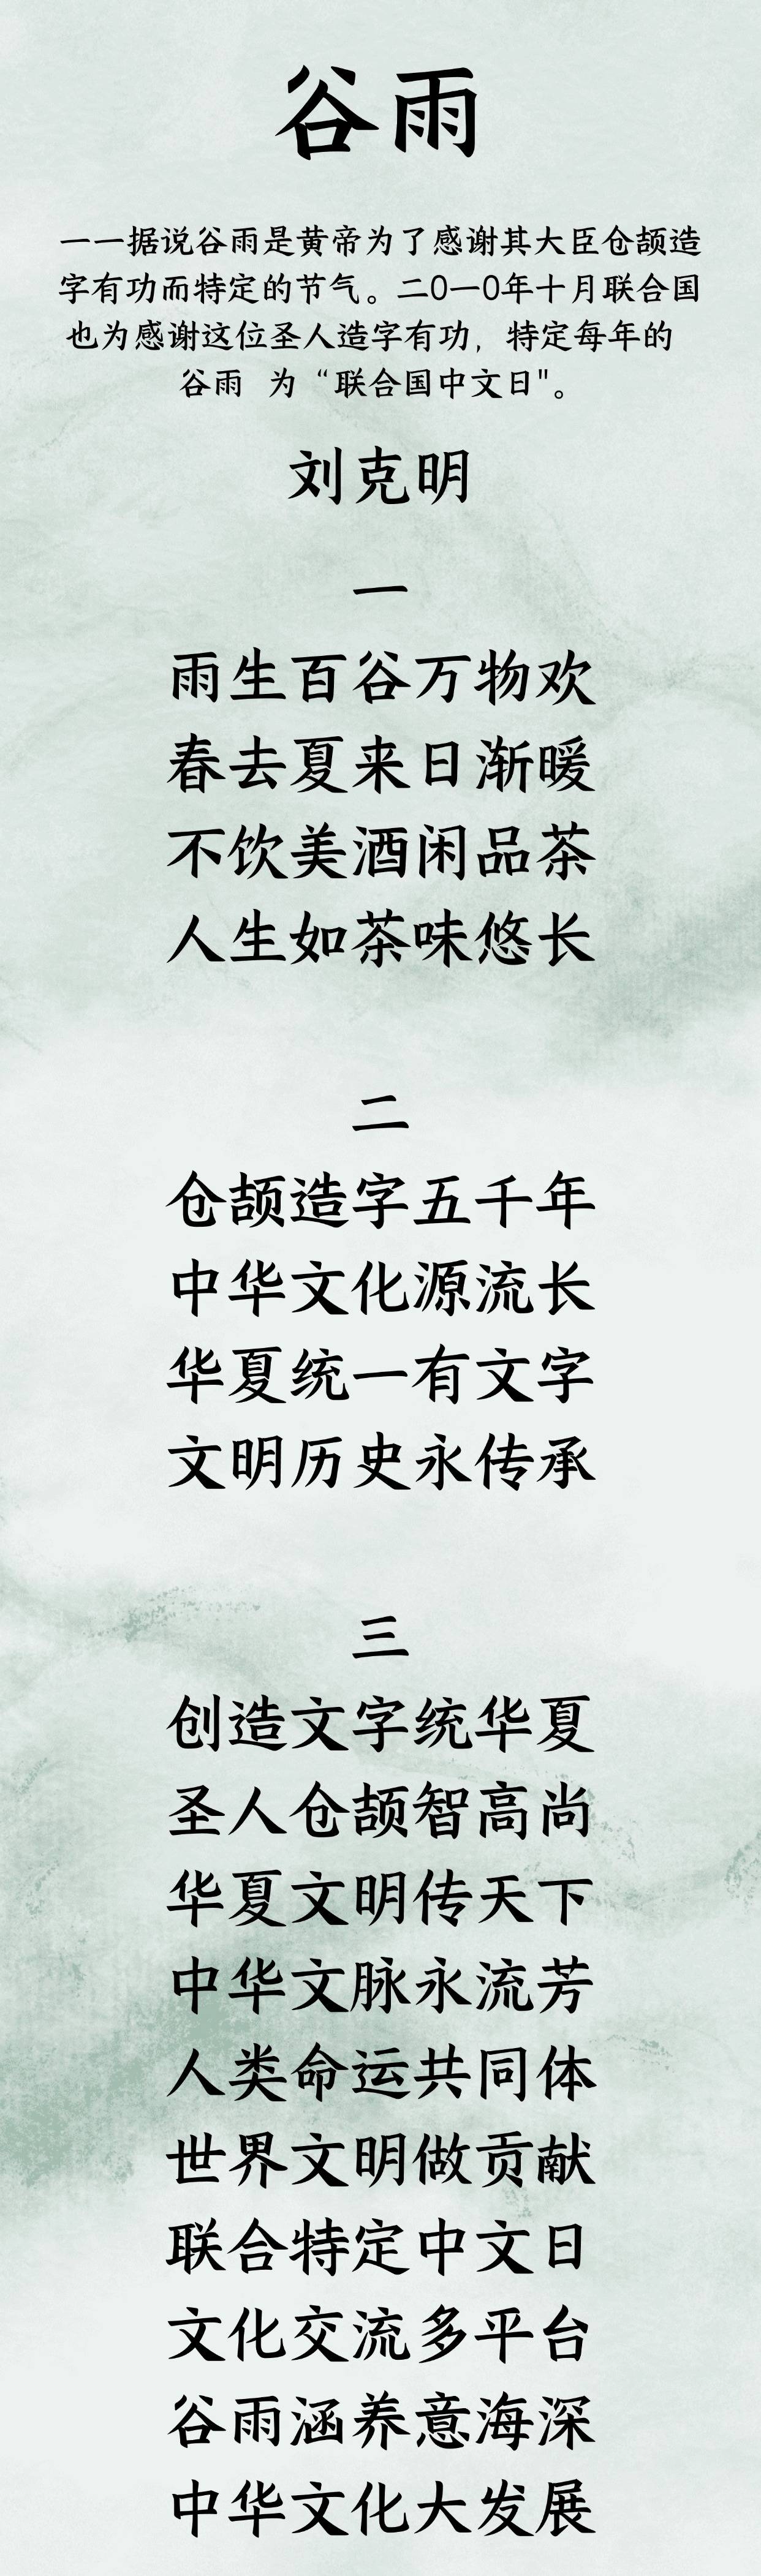 谷雨
一一据说谷雨是黄帝为了感谢其大臣仓颉造
字有功而特定的节气。二0一0年十月联合国
也为感谢这位圣人造字有功，特定每年的
谷雨 为“联合国中文日"。
刘克明
一
雨生百谷万物欢
春去夏来日渐暖
不饮美酒闲品茶
人生如茶味悠长
二
仓颉造字五千年
中华文化源流长
华夏统一有文字
文明历史永传承
三
创造文字统华夏
圣人仓颉智高尚
华夏文明传天下
中华文脉永流芳
人类命运共同体
世界文明做贡献
联合特定中文日
文化交流多平台
谷雨涵养意海深
中华文化大发展